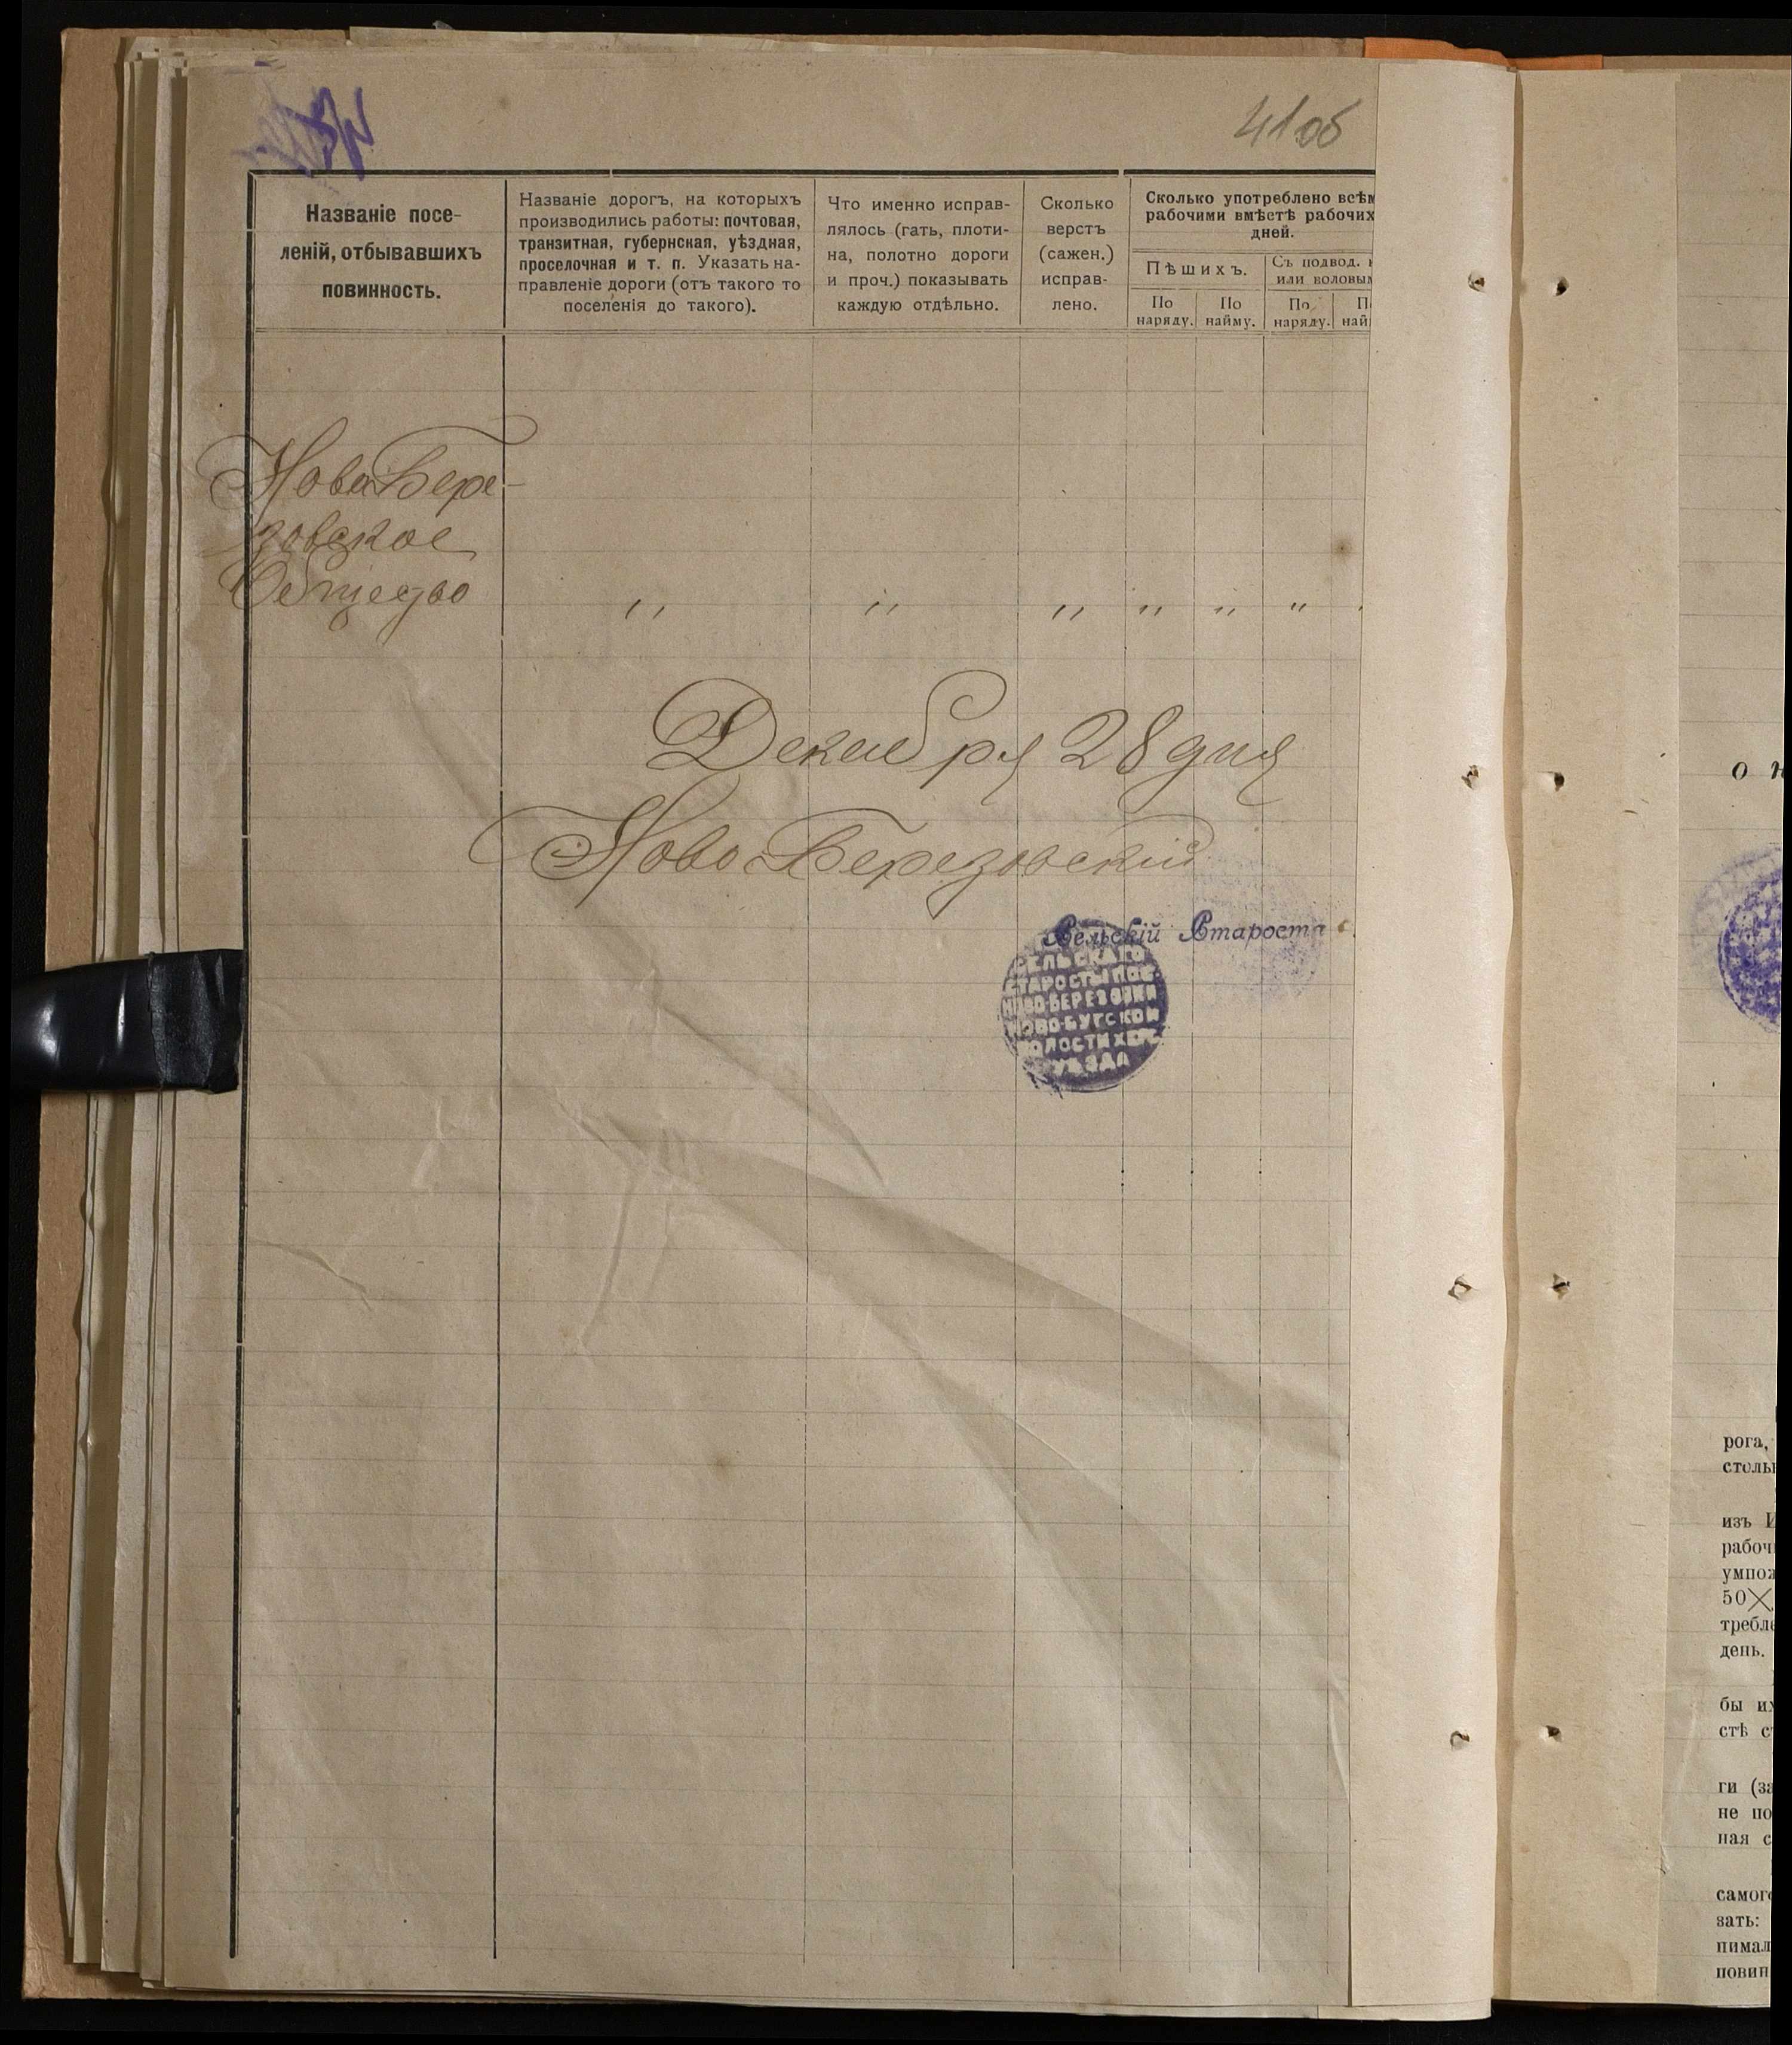 41об
Названіе посе-
леній, отбывавшихъ
повинность.
Названіе дорогъ, на которыхъ
производились работы: почтовая,
транзитная, губернская, уѣздная,
проселочная и т. п. Указать на-
правленіе дороги (отъ такого то
поселенія до такого).
Что именно исправ-
лялось (гать, плоти-
на, полотно дороги
и проч.) показывать
каждую отдѣльно.
Сколько
верстъ
(сажен.)
исправ-
лено.
Сколько употреблено всѣм
рабочими вмѣстѣ рабочих
дней.
Пѣшихъ.
Съ подвод.
или воловым
По
наряду.
По
найму.
По
наряду.
П
най
Ново Бере-
зовское
Общество
" " " " " "
Декабря 28 дня
Ново Березовскій
Сельскій Староста
СЕЛЬСКАГО
СТАРОСТЫ ПОС.
НОВО-БЕРЕЗОВКИ
НОВО-БУГСКОЙ
ВОЛОСТИ ХЕРС
УѢЗДА
о н
рога,
столь
изъ
рабоч
умнож
50×
требле
день.
бы их
стѣ с
ги (за
не по
ная с
самого
зать:
нимал
повин